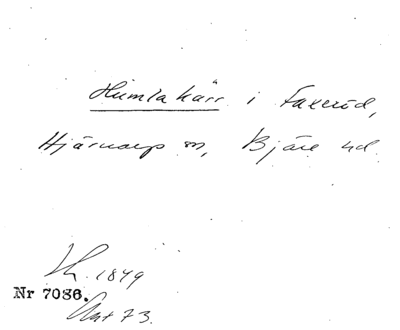 Humlakärr i Faxeröd,
Hjärnarp sn, Bjäre hd.
1849
Nr 7086.
Ant 73.